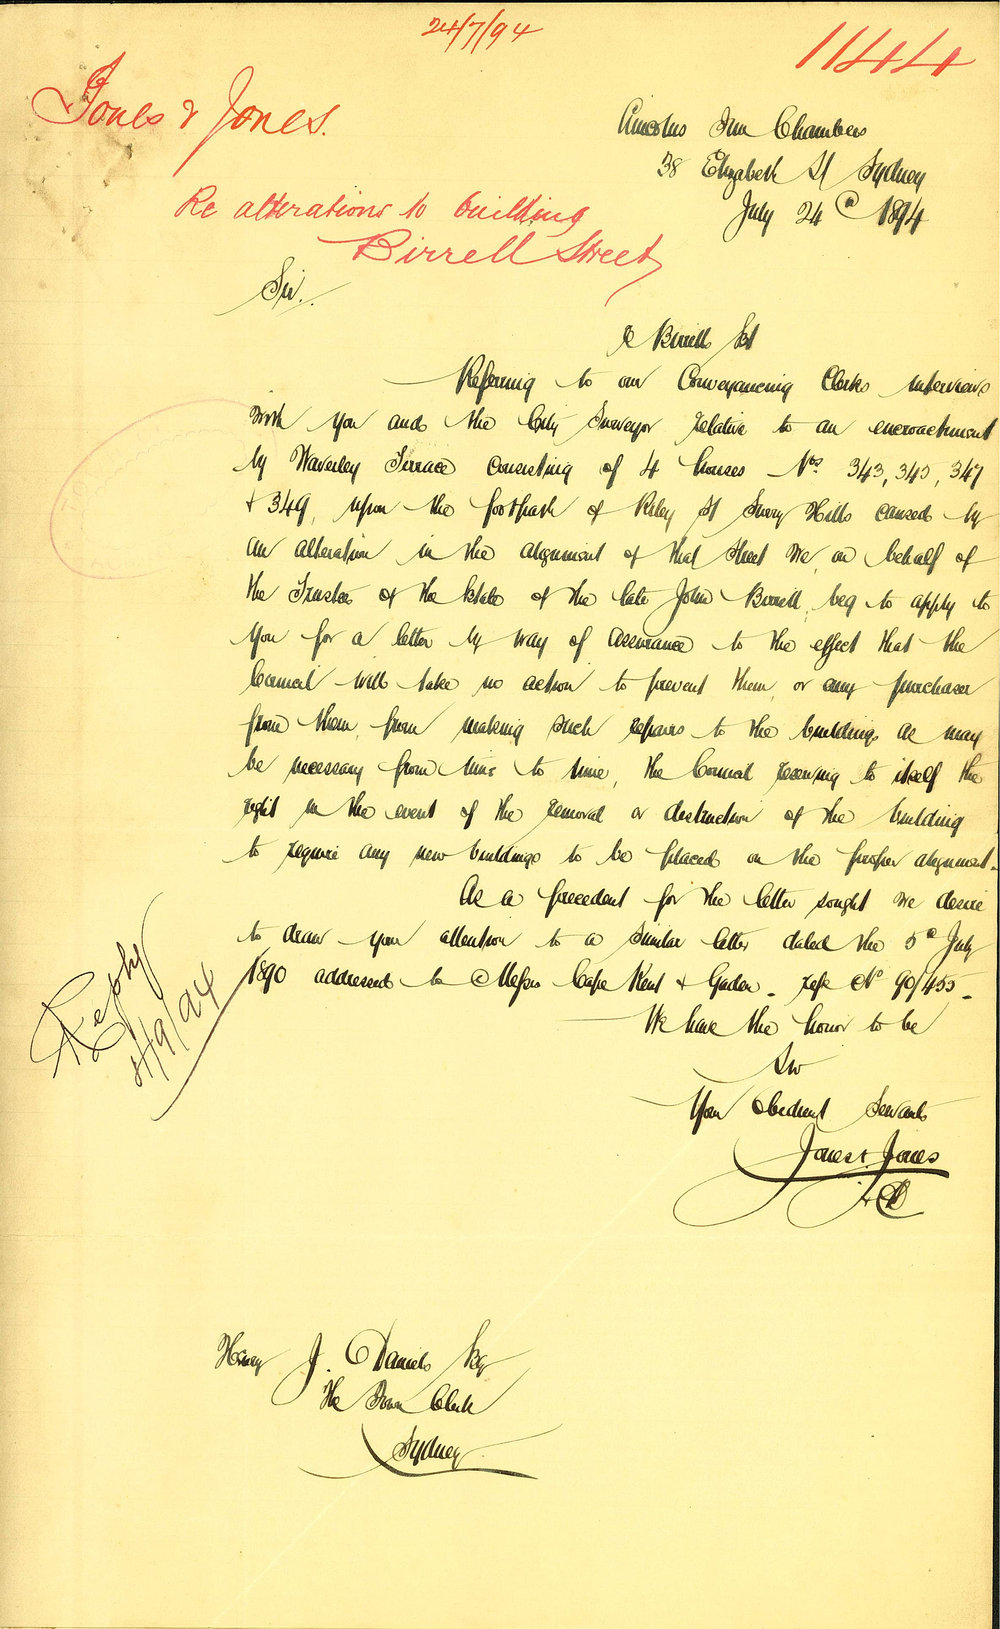 24/7/94
1144
Jones & Jones.
Lincolns Inn Chambers
38 Elizabeth St Sydney
July 24th 1894
Re alterations to building
Birrell Street
Sir.
Birrells Est
Referring to our Conveyancing Clerks interviews
with you and the City Surveyor relative to an encroachment
by Waverley Terrace consisting of 4 houses Nos. 343, 345, 347
& 349, upon the footpath of Riley St Surry Hills caused by
an alteration in the alignment of that street we, on behalf of
the Trustees of the Estate of the late John Birrell, beg to apply to
you for a letter by way of assurance to the effect that the
Council will take no action to prevent them, or any purchaser
from them, from making such repairs to the buildings as may
be necessary from time to time, the Council reserving to itself the
right in the event of the removal or destruction of the building
to require any new buildings to be placed on the proper alignment.
As a precedent for the letter sought we desire
to draw your attention to a similar letter dated the 5th July
1890 addressed to Messrs Cape Kent & Gaden - refce No 90/455 -
Reply
4/9/94
We have the honor to be
Sir
Your Obedient Servants
Jones & Jones
Henry J. Daniels Esq
The Town Clerk
Sydney